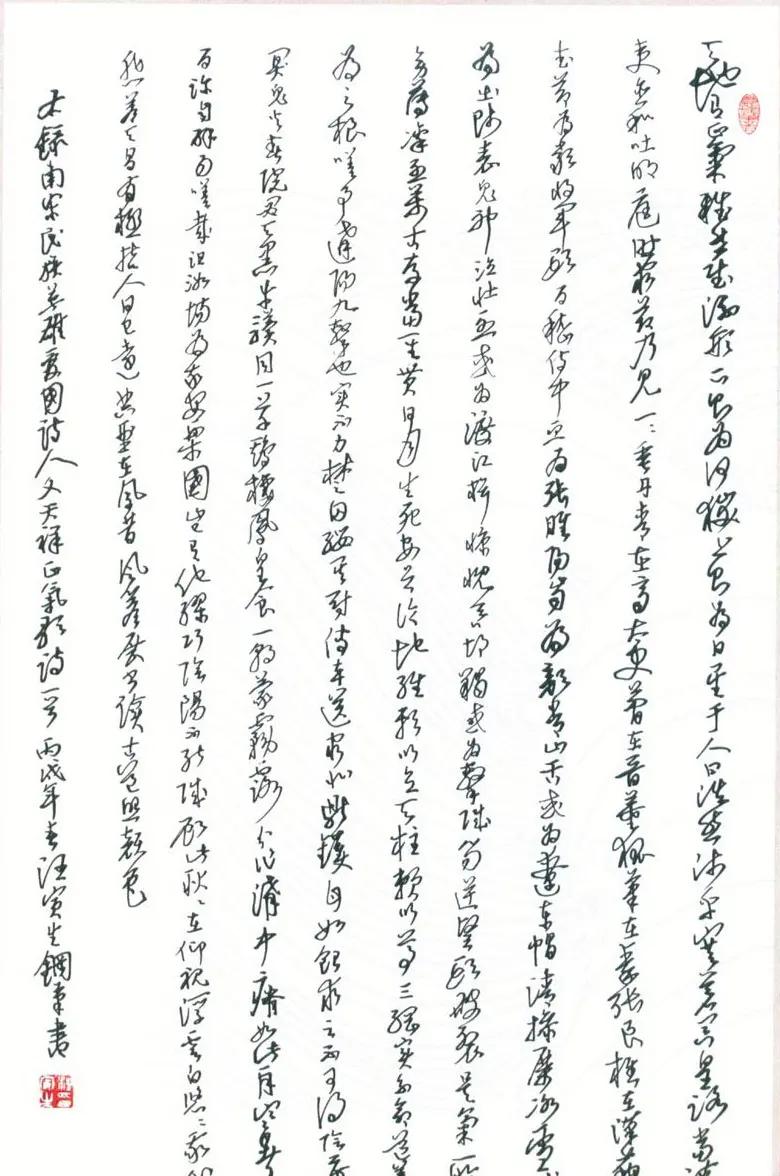 天地有正氣雜然賦流形下則為河嶽上則為日星于人曰浩然沛乎塞蒼冥皇路當清
夷含和吐明庭時窮節乃見一一垂丹青在齊太史簡在晉董狐筆在秦張良椎在漢蘇
武節為嚴將軍頭為嵇侍中血為張睢陽齒為顏常山舌或為遼東帽清操厲冰雪
為出師表鬼神泣壯烈或為渡江楫慷慨吞胡羯或為擊賊笏逆豎頭破裂是氣所
磅礴凜烈萬古存當其貫日月生死安足論地維賴以立天柱賴以尊三綱實係命道義
為之根嗟予遘陽九隸也實不力楚囚纓其冠傳車送窮北鼎鑊甘如飴求之不可得陰房
闃鬼火春院閟天黑牛驥同一皂雞棲鳳皇食一朝蒙霧露分作溝中瘠如此再寒暑
百沴自辟易嗟哉沮洳場為我安樂國豈有他繆巧陰陽不能賊顧此耿耿在仰視浮雲白悠悠我心
悲蒼天曷有極哲人日已遠典型在夙昔風簷展書讀古道照顏色
右錄南宋民族英雄愛國詩人文天祥正氣歌詩一首 丙戌年春汪寅生鋼筆書